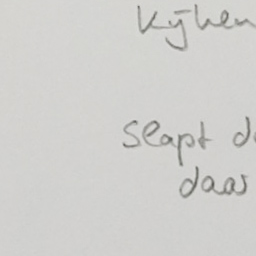 kijken
slapt d
daar